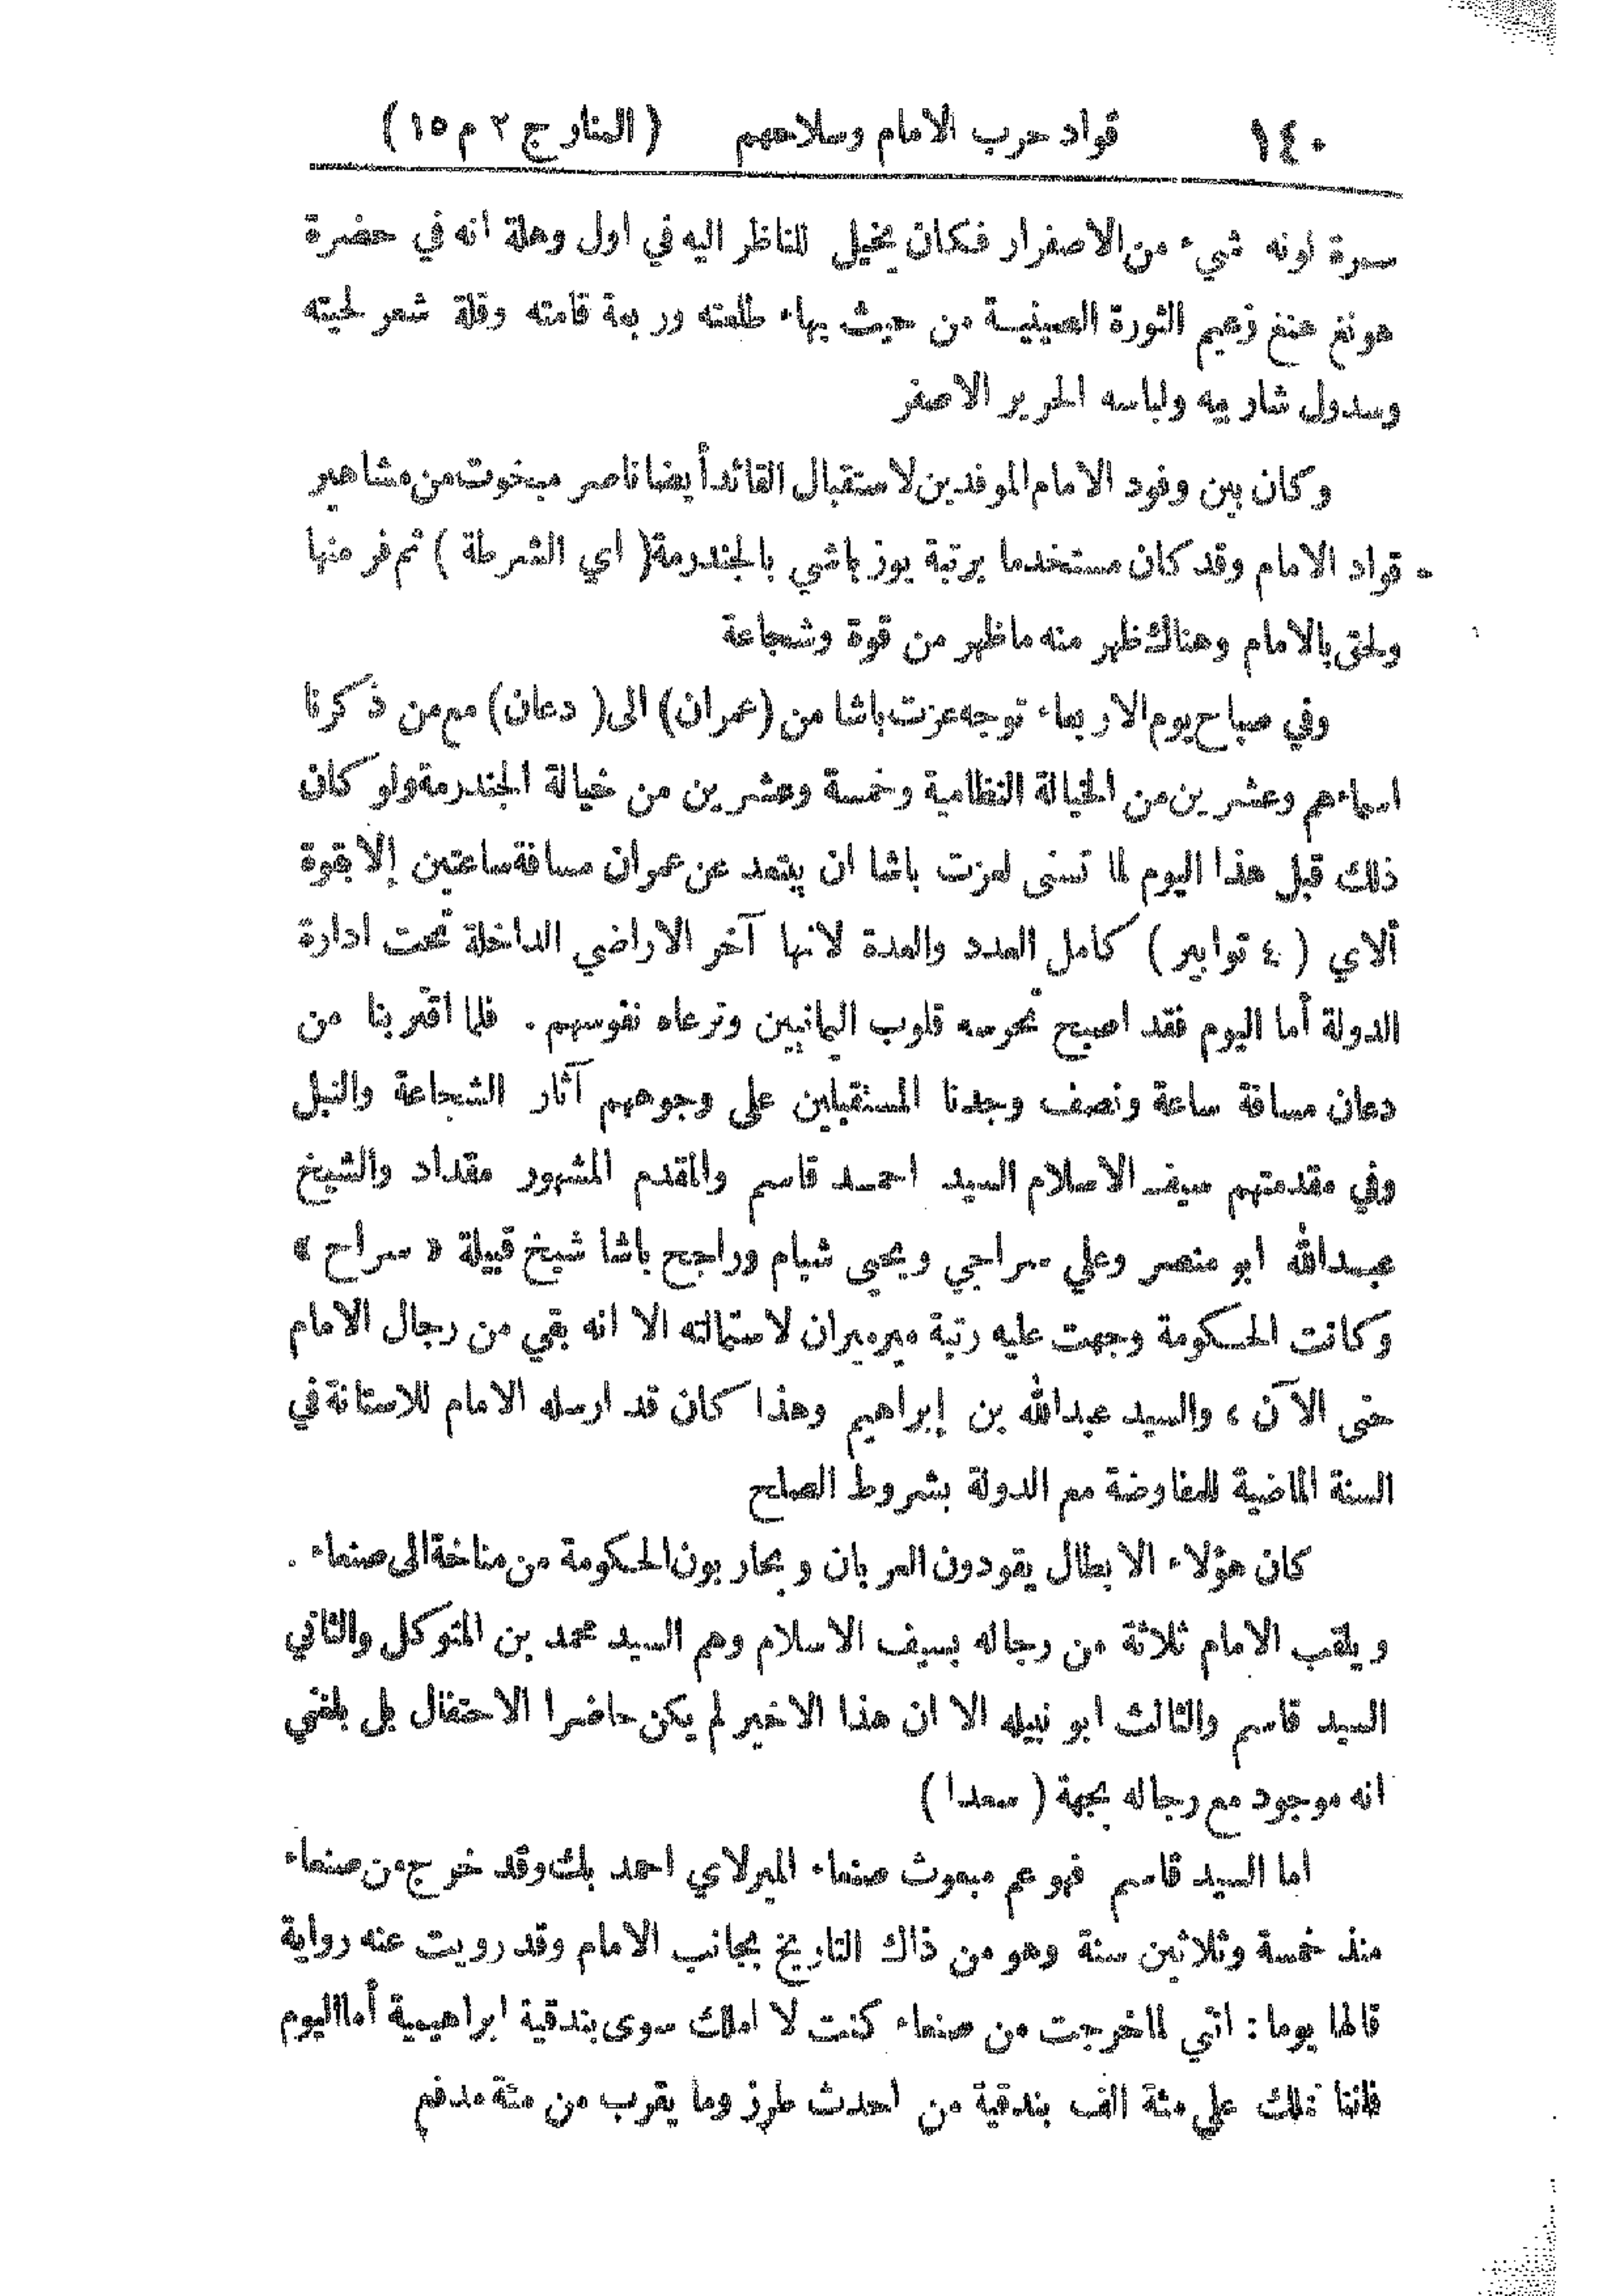 ١٤٠ قواد حرب الامام وسلاحهم (المنار ج ٢ م ١٥)
سمرة لونه شيء من الاصفرار فكان يخيل للناظر اليه في اول وهلة انه في حضرة
هونغ هنغ زعيم الثورة الصينية من حيث بهاء طلعته وربعة قامته وقلة شعر لحيته
وسدول شاربيه ولباسه الحرير الاصفر
وكان بين وفود الامام الموفدين لاستقبال القائد أيضا ناصر مبخوت من مشاهير
قواد الامام وقد كان مستخدما برتبة يوزباشي بالجندرمة (اي الشرطة) ثم فر منها
ولحق بالامام وهناك ظهر منه ماظهر من قوة وشجاعة
وفي صباح يوم الاربعاء توجه عزت باشا من (عمران) الى (دعان) مع من ذكرنا
اسماءهم وعشرين من الخيالة النظامية وخمسة وعشرين من خيالة الجندرمة ولو كان
ذلك قبل هذا اليوم لما تسنى لعزت باشا ان يبتعد عن عمران مسافة ساعتين إلا بقوة
ألاي (٤ توابير) كامل العدد والعدة لانها آخر الاراضي الداخلة تحت ادارة
الدولة أما اليوم فقد اصبح تحوسه قلوب اليمانيين وترعاه نفوسهم . فلما اقتربنا من
دعان مسافة ساعة ونصف وجدنا المستقبلين على وجوههم آثار الشجاعة والنبل
وفي مقدمتهم سيف الاسلام السيد احمد قاسم والمقدم المشهور مقداد والشيخ
عبدالله ابو منصر وعلي سراجي ويحيى شيام وراجح باشا شيخ قبيلة « سراح »
وكانت الحكومة وجهت عليه رتبة ميرميران لاستمالته الا انه بقي من رجال الامام
حتى الآن ، والسيد عبدالله بن إبراهيم وهذا كان قد ارسله الامام للاستانة في
السنة الماضية للمفاوضة مع الدولة بشروط الصلح
كان هؤلاء الابطال يقودون العربان ويحاربون الحكومة من مناخة الى صنعاء .
ويلقب الامام ثلاثة من رجاله بسيف الاسلام وهم السيد محمد بن المتوكل والثاني
السيد قاسم والثالث ابو نبيله الا ان هذا الاخير لم يكن حاضرا الاحتفال بل بلغني
انه موجود مع رجاله بجهة (سعدا)
اما السيد قاسم فهو عم مبعوث صنعاء الميرلاي احمد بك وقد خرج من صنعاء
منذ خمسة وثلاثين سنة وهو من ذاك التاريخ بجانب الامام وقد رويت عنه رواية
قالها يوما : انني لما خرجت من صنعاء كنت لا املك سوى بندقية ابراهيمية أما اليوم
فاننا نملك على مئة الف بندقية من احدث طرز وما يقرب من مئة مدفع